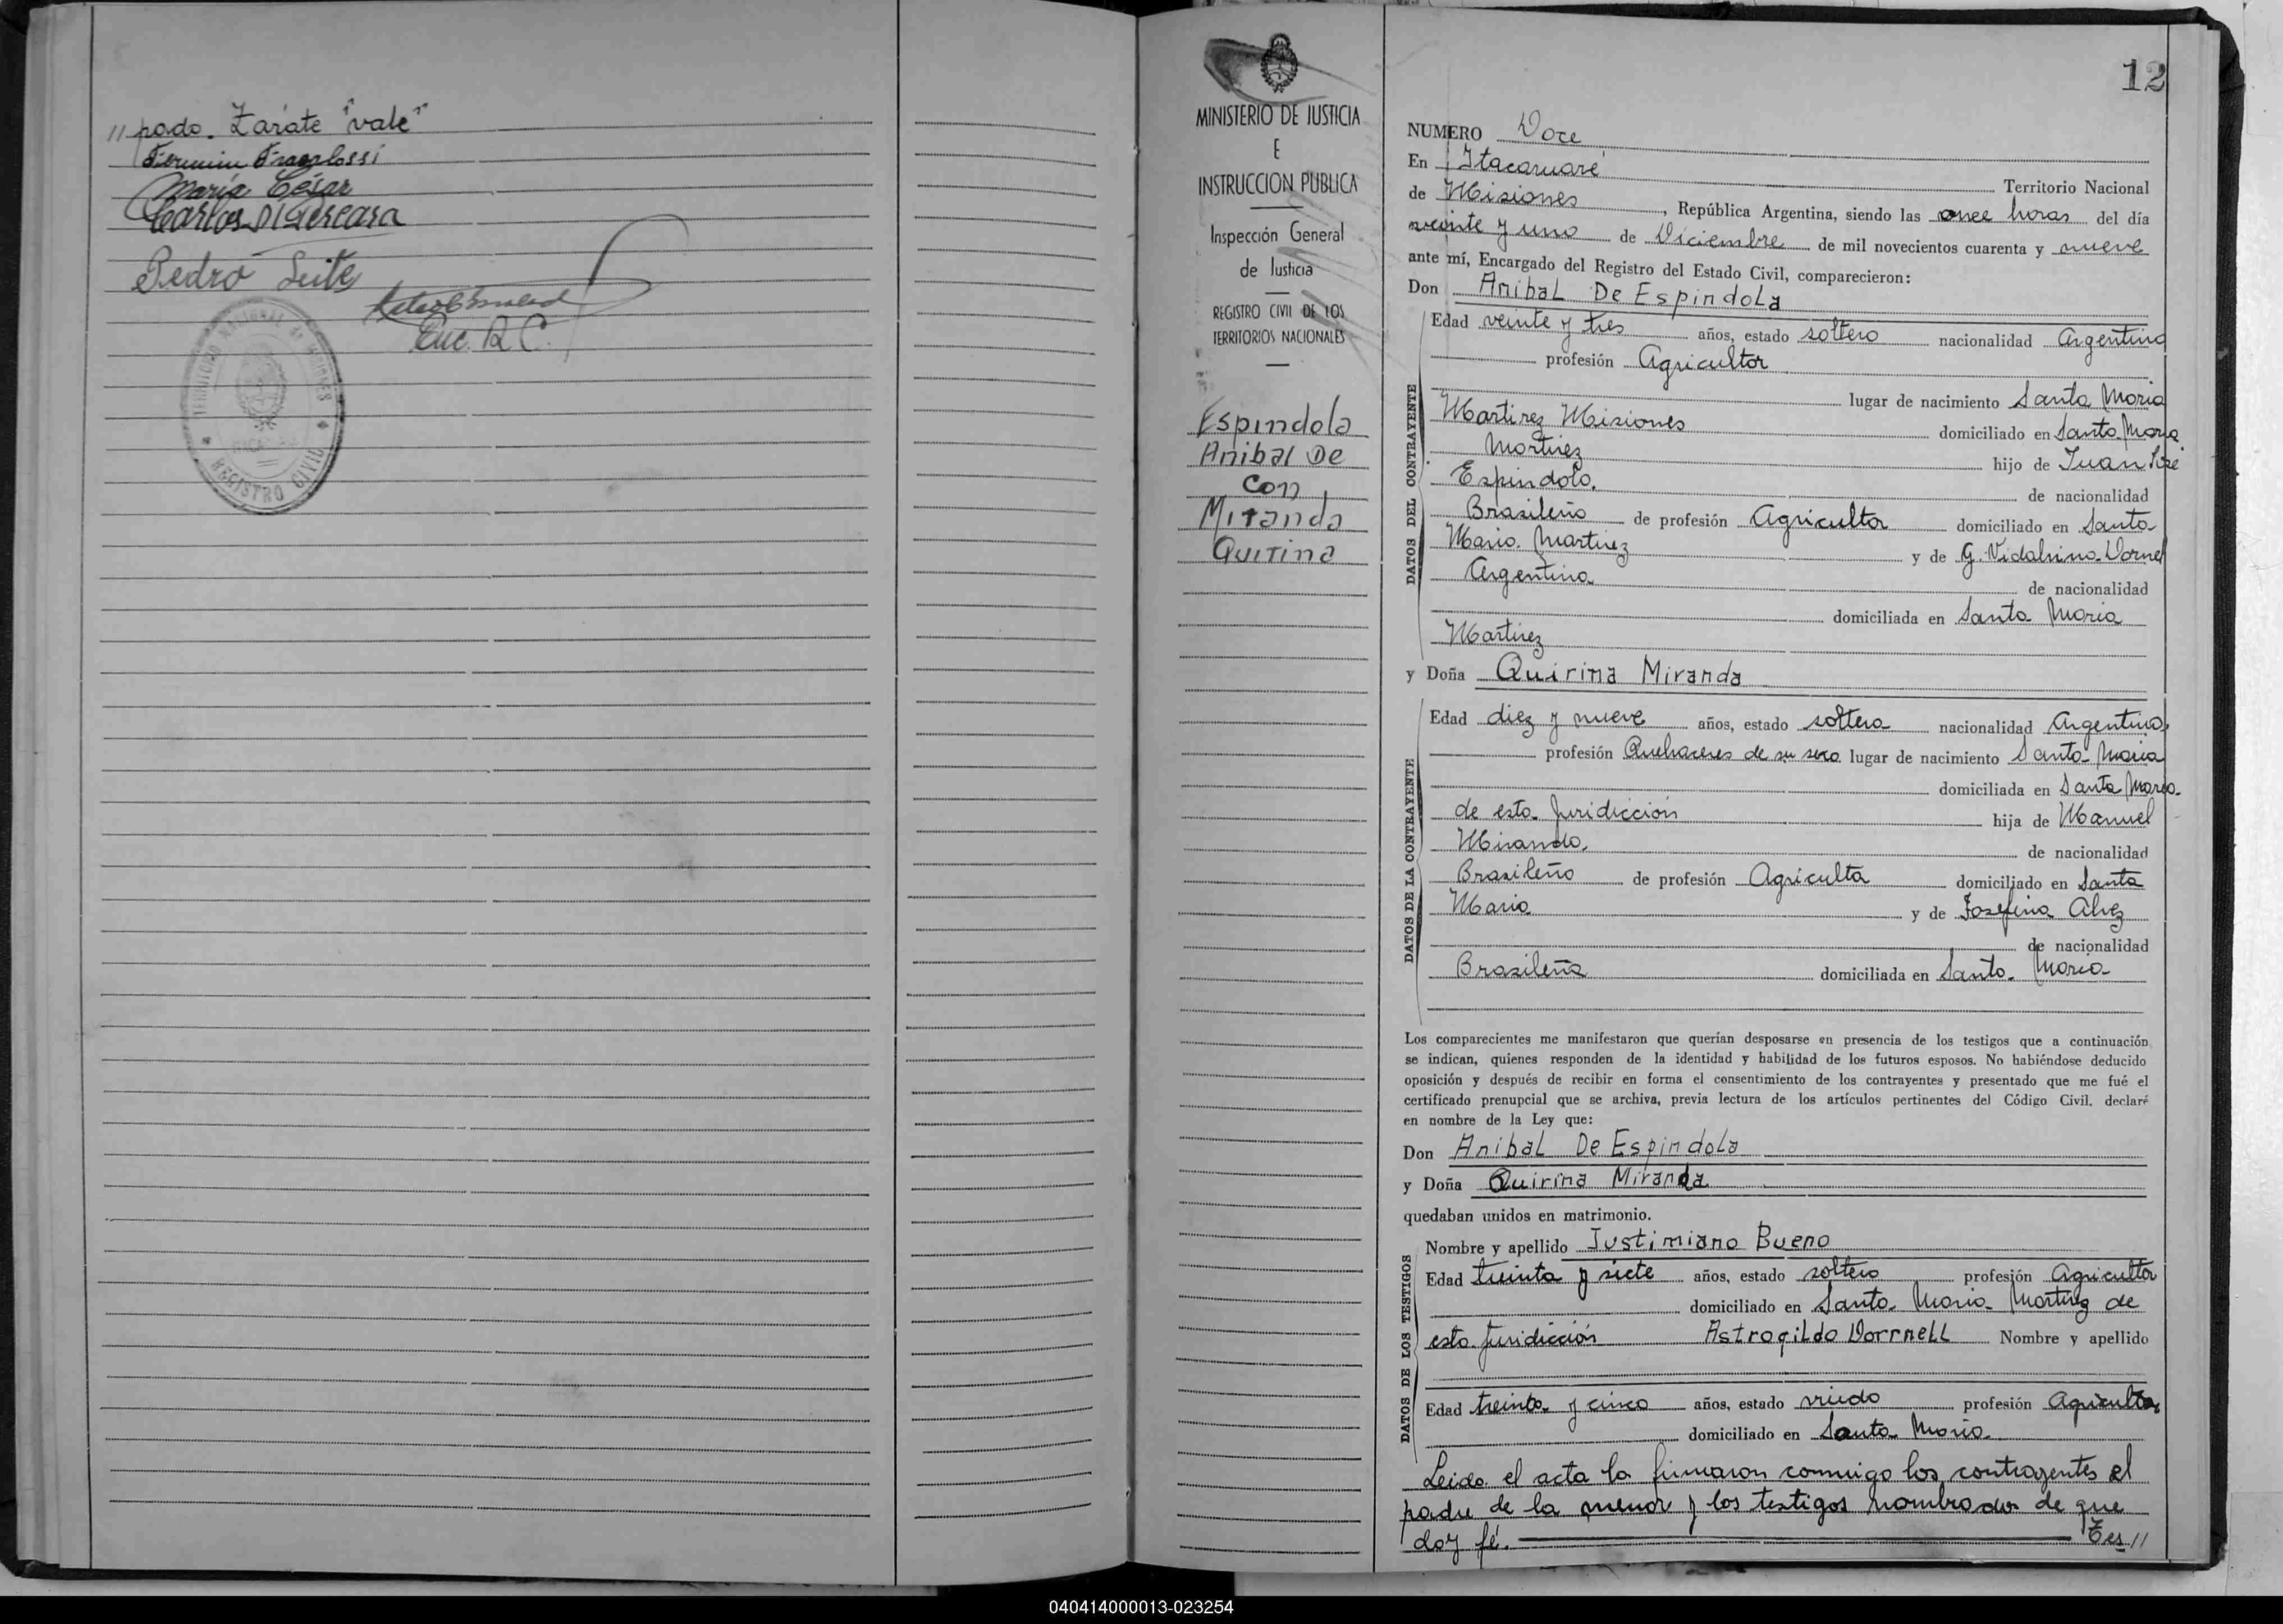 // pado. Zárate "vale"
María César
Pedro Leite
Enc. R. C.
TERRITORIO NACIONAL de MISIONES
REGISTRO CIVIL
MINISTERIO DE JUSTICIA
E
INSTRUCCION PUBLICA
Inspección General
de Justicia
REGISTRO CIVIL DE LOS
TERRITORIOS NACIONALES
Espindola
Anibal De
Con
Miranda
Quirina
12
NUMERO Doce
En Itacaruaré
Territorio Nacional
de Misiones, República Argentina, siendo las once horas del día
veinte y uno de Diciembre de mil novecientos cuarenta y nueve
ante mí, Encargado del Registro del Estado Civil, comparecieron:
Don Anibal De Espindola
DATOS DEL CONTRAYENTE
Edad veinte y tres años, estado soltero nacionalidad Argentina
profesión Agricultor
lugar de nacimiento Santa Maria
Martirez Misiones domiciliado en Santa Maria
Martirez hijo de Juan José
Espindola. de nacionalidad
Brasileño de profesión Agricultor domiciliado en Santa
Maria Martirez y de G. Vidalvina Dornel
Argentina de nacionalidad
domiciliada en Santa Maria
Martirez
y Doña Quirina Miranda
DATOS DE LA CONTRAYENTE
Edad diez y nueve años, estado soltera nacionalidad Argentina
profesión Quehaceres de su sexo lugar de nacimiento Santa Maria
domiciliada en Santa Maria
de esta Juridicción hija de Manuel
Miranda. de nacionalidad
Brasileño de profesión Agriculta domiciliado en Santa
Maria y de Josefina Alvez
de nacionalidad
Brasileña domiciliada en Santa Maria
Los comparecientes me manifestaron que querían desposarse en presencia de los testigos que a continuación
se indican, quienes responden de la identidad y habilidad de los futuros esposos. No habiéndose deducido
oposición y después de recibir en forma el consentimiento de los contrayentes y presentado que me fué el
certificado prenupcial que se archiva, previa lectura de los artículos pertinentes del Código Civil, declaré
en nombre de la Ley que:
Don Anibal De Espindola
y Doña Quirina Miranda
quedaban unidos en matrimonio.
DATOS DE LOS TESTIGOS
Nombre y apellido Justimiano Bueno
Edad treinta y siete años, estado soltero profesión Agricultor
domiciliado en Santa Maria Martirez de
esta Juridicción Astrogildo Dorrnell Nombre y apellido
Edad treinta y cinco años, estado viudo profesión Agricultor
domiciliado en Santa Maria
Leida el acta la firmaron conmigo los contrayentes el
padre de la menor y los testigos nombrados de que
doy fé. Tes //
040414000013-023254